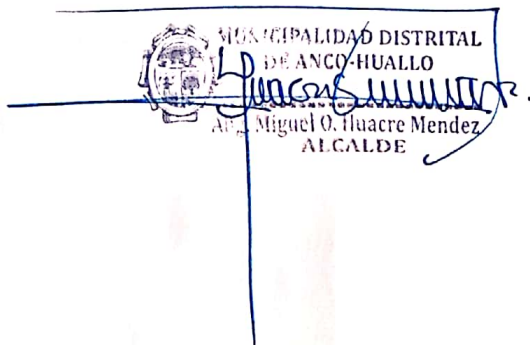 MUNICIPALIDAD DISTRITAL
DE ANCO-HUALLO
Miguel O. Huacre Mendez
ALCALDE